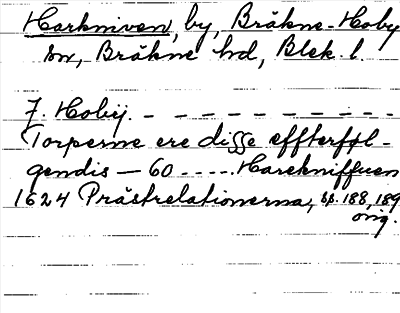 Harkniven, by, Bräkne-Hoby
sn, Bräkne hd, Blek. l.
J. Hobÿ. - - - - - - - - - -
Torperne ere disse effterføl-
gendis — 60 ..... Harekniffuen
1624 Prästrelationerna, ss. 188, 189
orig.